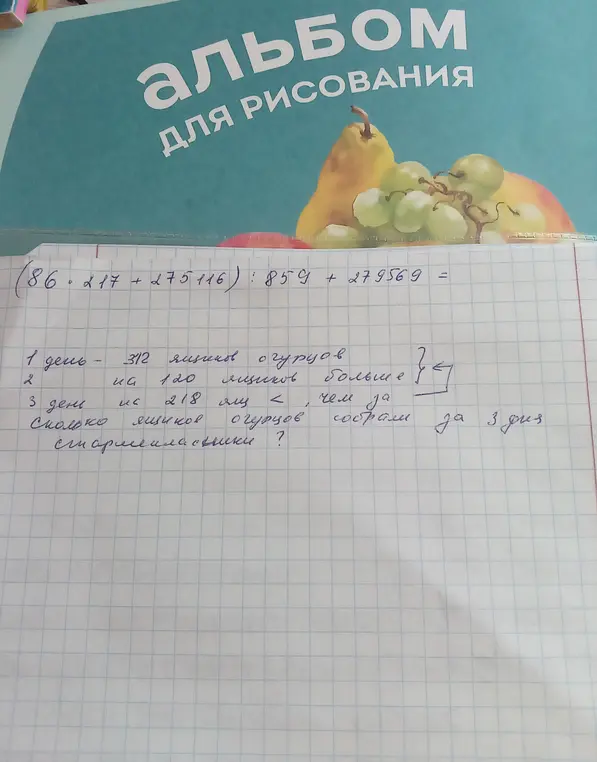 АЛЬБОМ
ДЛЯ РИСОВАНИЯ
(86 · 217 + 275116) : 859 + 279569 =
1 день - 312 ящиков огурцов
2 на 120 ящиков больше
3 день на 218 ящ < , чем за
Сколько ящиков огурцов собрали за 3 дня
старшеклассники ?